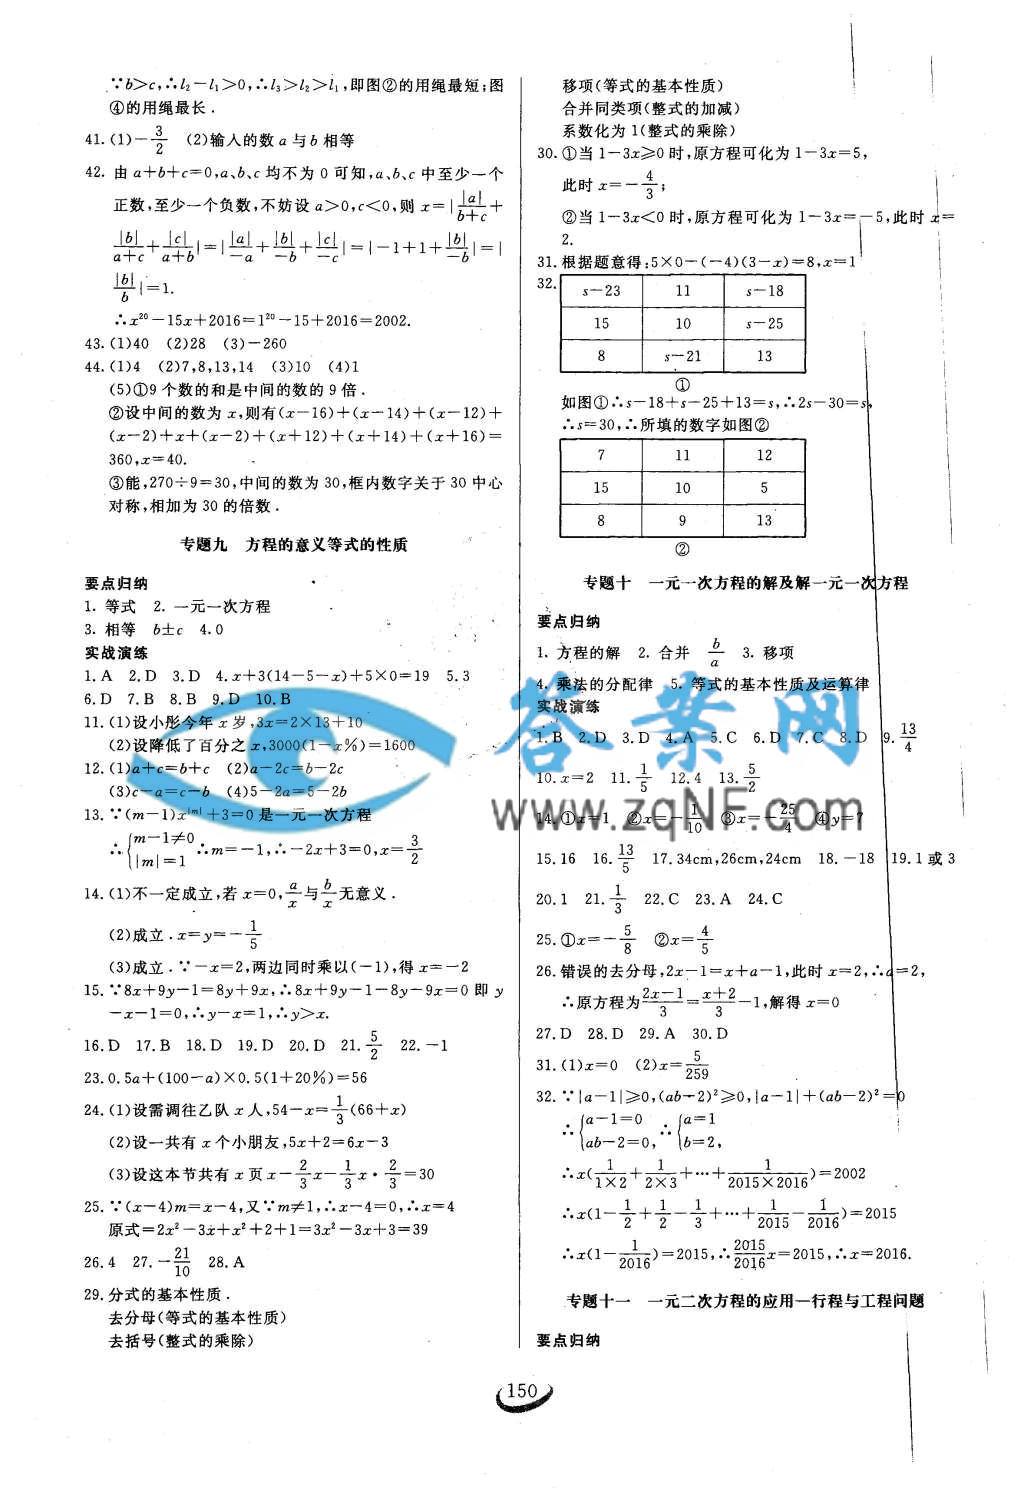 ∵b>c,∴l₂-l₁>0,∴l₃>l₂>l₁,即图②的用绳最短;图
④的用绳最长.
41.(1)-3/2 (2)输入的数a与b相等
42.由a+b+c=0,a、b、c均不为0可知,a、b、c中至少一个
正数,至少一个负数,不妨设a>0,c<0,则x=||a|/(b+c)+
|b|/(a+c)+|c|/(a+b)|=||a|/(-a)+|b|/(-b)+|c|/(-c)|=|-1+1+|b|/(-b)|=|
|b|/b|=1.
∴x²⁰-15x+2016=1²⁰-15+2016=2002.
43.(1)40 (2)28 (3)-260
44.(1)4 (2)7,8,13,14 (3)10 (4)1
(5)①9个数的和是中间的数的9倍.
②设中间的数为x,则有(x-16)+(x-14)+(x-12)+
(x-2)+x+(x-2)+(x+12)+(x+14)+(x+16)=
360,x=40.
③能,270÷9=30,中间的数为30,框内数字关于30中心
对称,相加为30的倍数.
专题九 方程的意义等式的性质
要点归纳
1.等式 2.一元一次方程
3.相等 b±c 4.0
实战演练
1.A 2.D 3.D 4.x+3(14-5-x)+5×0=19 5.3
6.D 7.B 8.B 9.D 10.B
11.(1)设小彤今年x岁,3x=2×13+10
(2)设降低了百分之x,3000(1-x%)=1600
12.(1)a+c=b+c (2)a-2c=b-2c
(3)c-a=c-b (4)5-2a=5-2b
13.∵(m-1)x^|m|+3=0是一元一次方程
∴{m-1≠0 |m|=1 ∴m=-1,∴-2x+3=0,x=3/2
14.(1)不一定成立,若x=0,a/x与b/x无意义.
(2)成立.x=y=-1/5
(3)成立.∵-x=2,两边同时乘以(-1),得x=-2
15.∵8x+9y-1=8y+9x,∴8x+9y-1-8y-9x=0即y
-x-1=0,∴y-x=1,∴y>x.
16.D 17.B 18.D 19.D 20.D 21.5/2 22.-1
23.0.5a+(100-a)×0.5(1+20%)=56
24.(1)设需调往乙队x人,54-x=1/3(66+x)
(2)设一共有x个小朋友,5x+2=6x-3
(3)设这本书共有x页x-2/3x-1/3x·2/3=30
25.∵(x-4)m=x-4,又∵m≠1,∴x-4=0,∴x=4
原式=2x²-3x+x²+2+1=3x²-3x+3=39
26.4 27.-21/10 28.A
29.分式的基本性质.
去分母(等式的基本性质)
去括号(整式的乘除)
移项(等式的基本性质)
合并同类项(整式的加减)
系数化为1(整式的乘除)
30.①当1-3x≥0时,原方程可化为1-3x=5,
此时x=-4/3;
②当1-3x<0时,原方程可化为1-3x=-5,此时x=
2.
31.根据题意得:5×0-(-4)(3-x)=8,x=1
32.
s-23 11 s-18
15 10 s-25
8 s-21 13
①
如图①∴s-18+s-25+13=s,∴2s-30=s,
∴s=30,∴所填的数字如图②
7 11 12
15 10 5
8 9 13
②
专题十 一元一次方程的解及解一元一次方程
要点归纳
1.方程的解 2.合并 b/a 3.移项
4.乘法的分配律 5.等式的基本性质及运算律
实战演练
1.B 2.D 3.D 4.A 5.C 6.D 7.C 8.D 9.13/4
10.x=2 11.1/5 12.4 13.5/2
14.①x=1 ②x=-1/10 ③x=-25/4 ④y=7
15.16 16.13/5 17.34cm,26cm,24cm 18.-18 19.1或3
20.1 21.1/3 22.C 23.A 24.C
25.①x=-5/8 ②x=4/5
26.错误的去分母,2x-1=x+a-1,此时x=2,∴a=2,
∴原方程为(2x-1)/3=(x+2)/3-1,解得x=0
27.D 28.D 29.A 30.D
31.(1)x=0 (2)x=5/259
32.∵|a-1|≥0,(ab-2)²≥0,|a-1|+(ab-2)²=0
∴{a-1=0 ab-2=0, ∴{a=1 b=2,
∴x(1/(1×2)+1/(2×3)+…+1/(2015×2016))=2002
∴x(1-1/2+1/2-1/3+…+1/2015-1/2016)=2015
∴x(1-1/2016)=2015,∴2015/2016x=2015,∴x=2016.
专题十一 一元二次方程的应用—行程与工程问题
要点归纳
150
答案网
www.zqNF.com